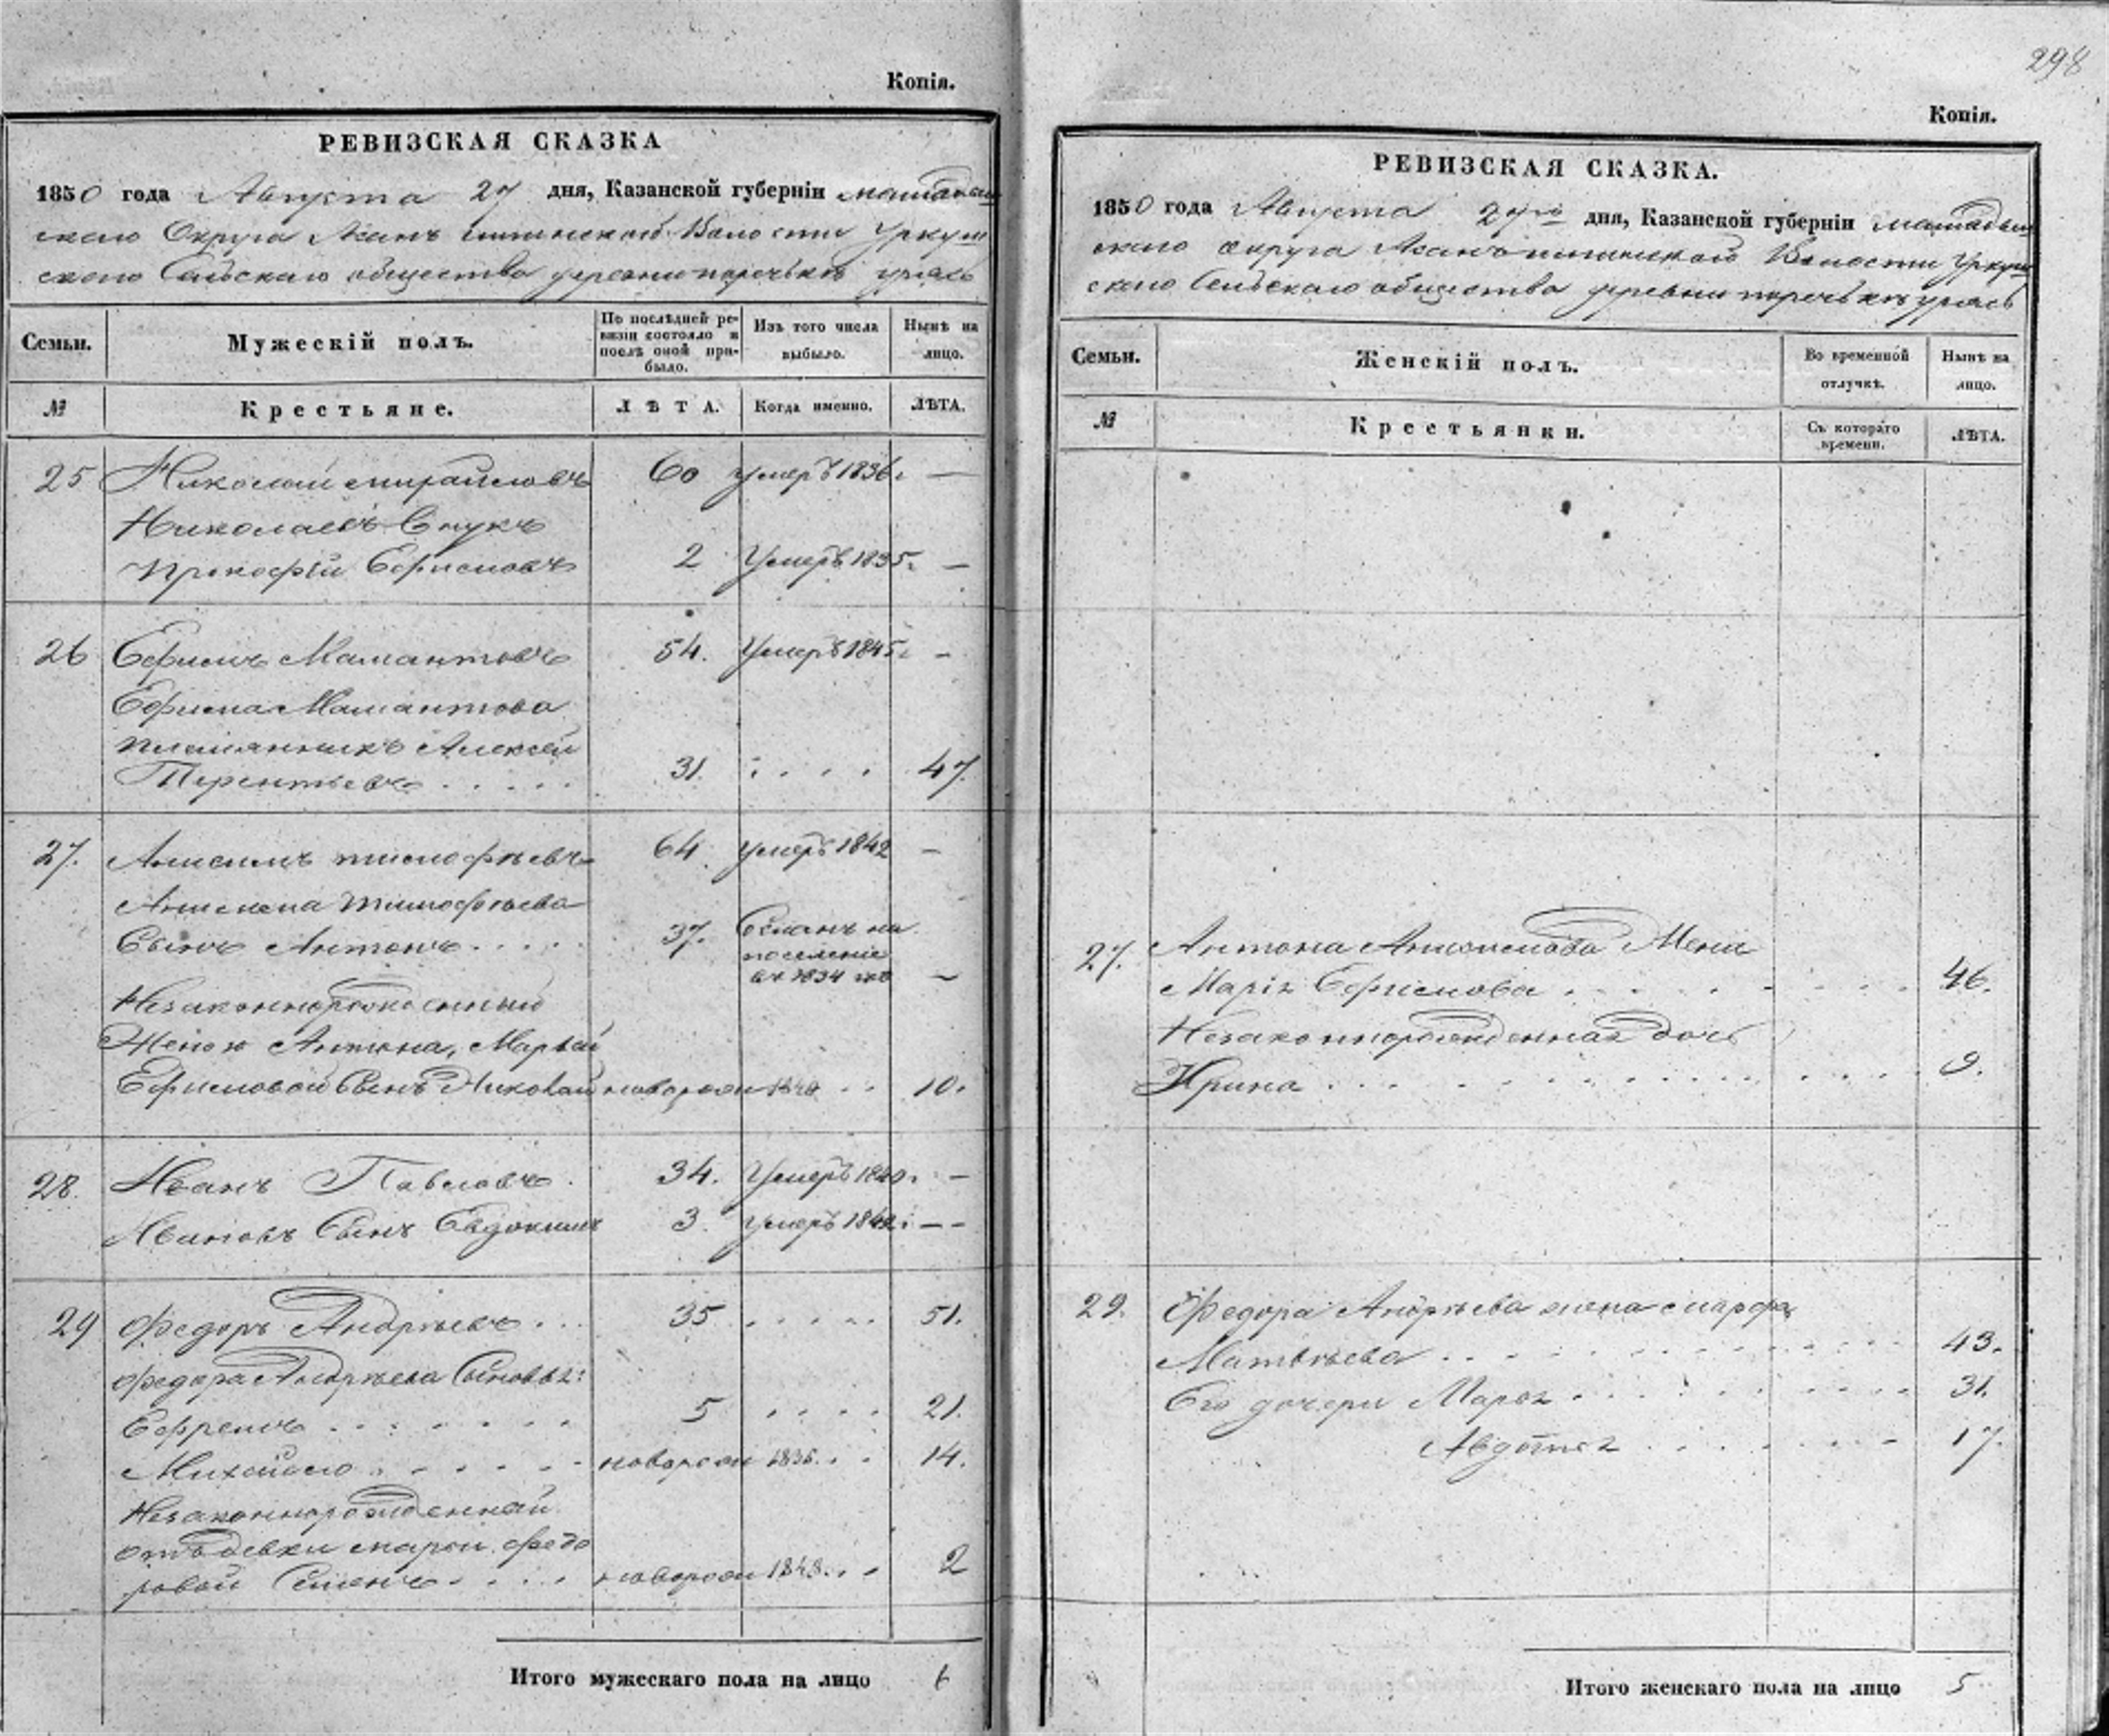 Копія.
РЕВИЗСКАЯ СКАЗКА
1850 года Августа 27 дня, Казанской губерніи
скаго Округа Волости
скаго Сельскаго общества деревни
Семьи. Мужескій полъ. По послѣдней ревизіи состояло и послѣ оной прибыло. Изъ того числа выбыло. Нынѣ на лицо.
№ Крестьяне. ЛѢТА. Когда именно. ЛѢТА.
25 Николай Михайловъ 60 умеръ 1836. —
Николаевъ Внукъ
Прокофій Ефимовъ 2 Умеръ 1835. —
26 Ефимъ Мамантовъ 54. Умеръ 1845. —
Ефима Мамантова
племянникъ Алексей
Терентьевъ . . . . . 31. . . . . 47.
27. Анисимъ тимофѣевъ 64 умеръ 1842 —
Анисима тимофѣева
Сынъ Антонъ . . . . 37. Сосланъ на
поселеніе
въ 1834 —
Незаконнорожденный
Женою Антона, Марьей
Ефимовой Сынъ Николай новорож 1840 . . 10.
28. Иванъ Павловъ . 34. Умеръ 1840. —
Ивановъ Сынъ Евдокимъ 3. умеръ 1840. — —
29 Федоръ Андрѣевъ . . . 35 . . . . . 51.
Федора Андрѣева Сыновья:
Ефремъ . . . . . . . 5 . . . . 21.
Михайло . . . . . . новорож 1836. . . 14.
Незаконнорожденной
отъ девки марьи федо
ровой Семенъ . . . . новорож 1848. . . 2
Итого мужескаго пола на лицо 6
298
Копія.
РЕВИЗСКАЯ СКАЗКА.
1850 года Августа 27го дня, Казанской губерніи
скаго округа Волости
скаго Сельскаго общества деревни
Семьи. Женскій полъ. Во временной отлучкѣ. Нынѣ на лицо.
№ Крестьянки. Съ котораго времени. ЛѢТА.
27. Антона Анисимова Жена
Марія Ефимова . . . . . . . . . 46.
Незаконнорожденная дочь
Ирина . . . . . . . . . . . . . 9.
29. Федора Андрѣева жена марфа
Матвѣева . . . . . . . . . . . . 43.
Его дочери Марья . . . . . . . . . 31.
Авдотья . . . . . . . 17.
Итого женскаго пола на лицо 5